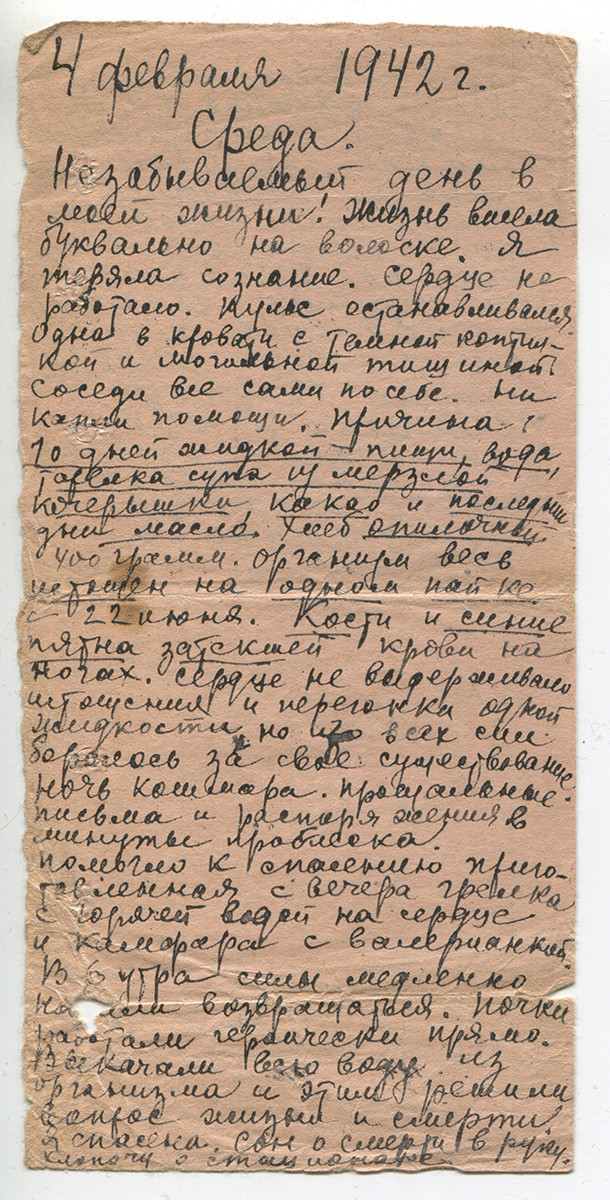 4 февраля 1942 г.
Среда.
Незабываемый день в
моей жизни! Жизнь висела
буквально на волоске. Я
теряла сознание. Сердце не
работало. Пульс останавливался.
Одна в кровати с темной коптил-
кой и могильной тишиной.
Соседи все сами по себе. Ни
капли помощи. Причина:
10 дней жидкой пищи, вода,
тарелка супа из мерзлой
кочерышки, какао и последнии
дни масло. Хлеб опилочный
400 грамм. Организм весь
истощен на одном пайке
с 22 июня. Кости и синие
пятна затекшей крови на
ногах. Сердце не выдерживало
истощения и перегонки одной
жидкости, но изо всех сил
боролось за свое существование.
Ночь кошмара. Прощальные
письма и распоряжения в
минуты проблеска.
Помогло к спасению приго-
товленная с вечера грелка
с горячей водой на сердце
и камфара с валерианкой.
В 6 утра силы медленно
начали возвращаться. Почки
работали героически прямо.
Выкачали всю воду из
организма и этим решили
вопрос жизни и смерти.
Я спасена. Сон о смерти в руку.
Хлопочу о стационаре.